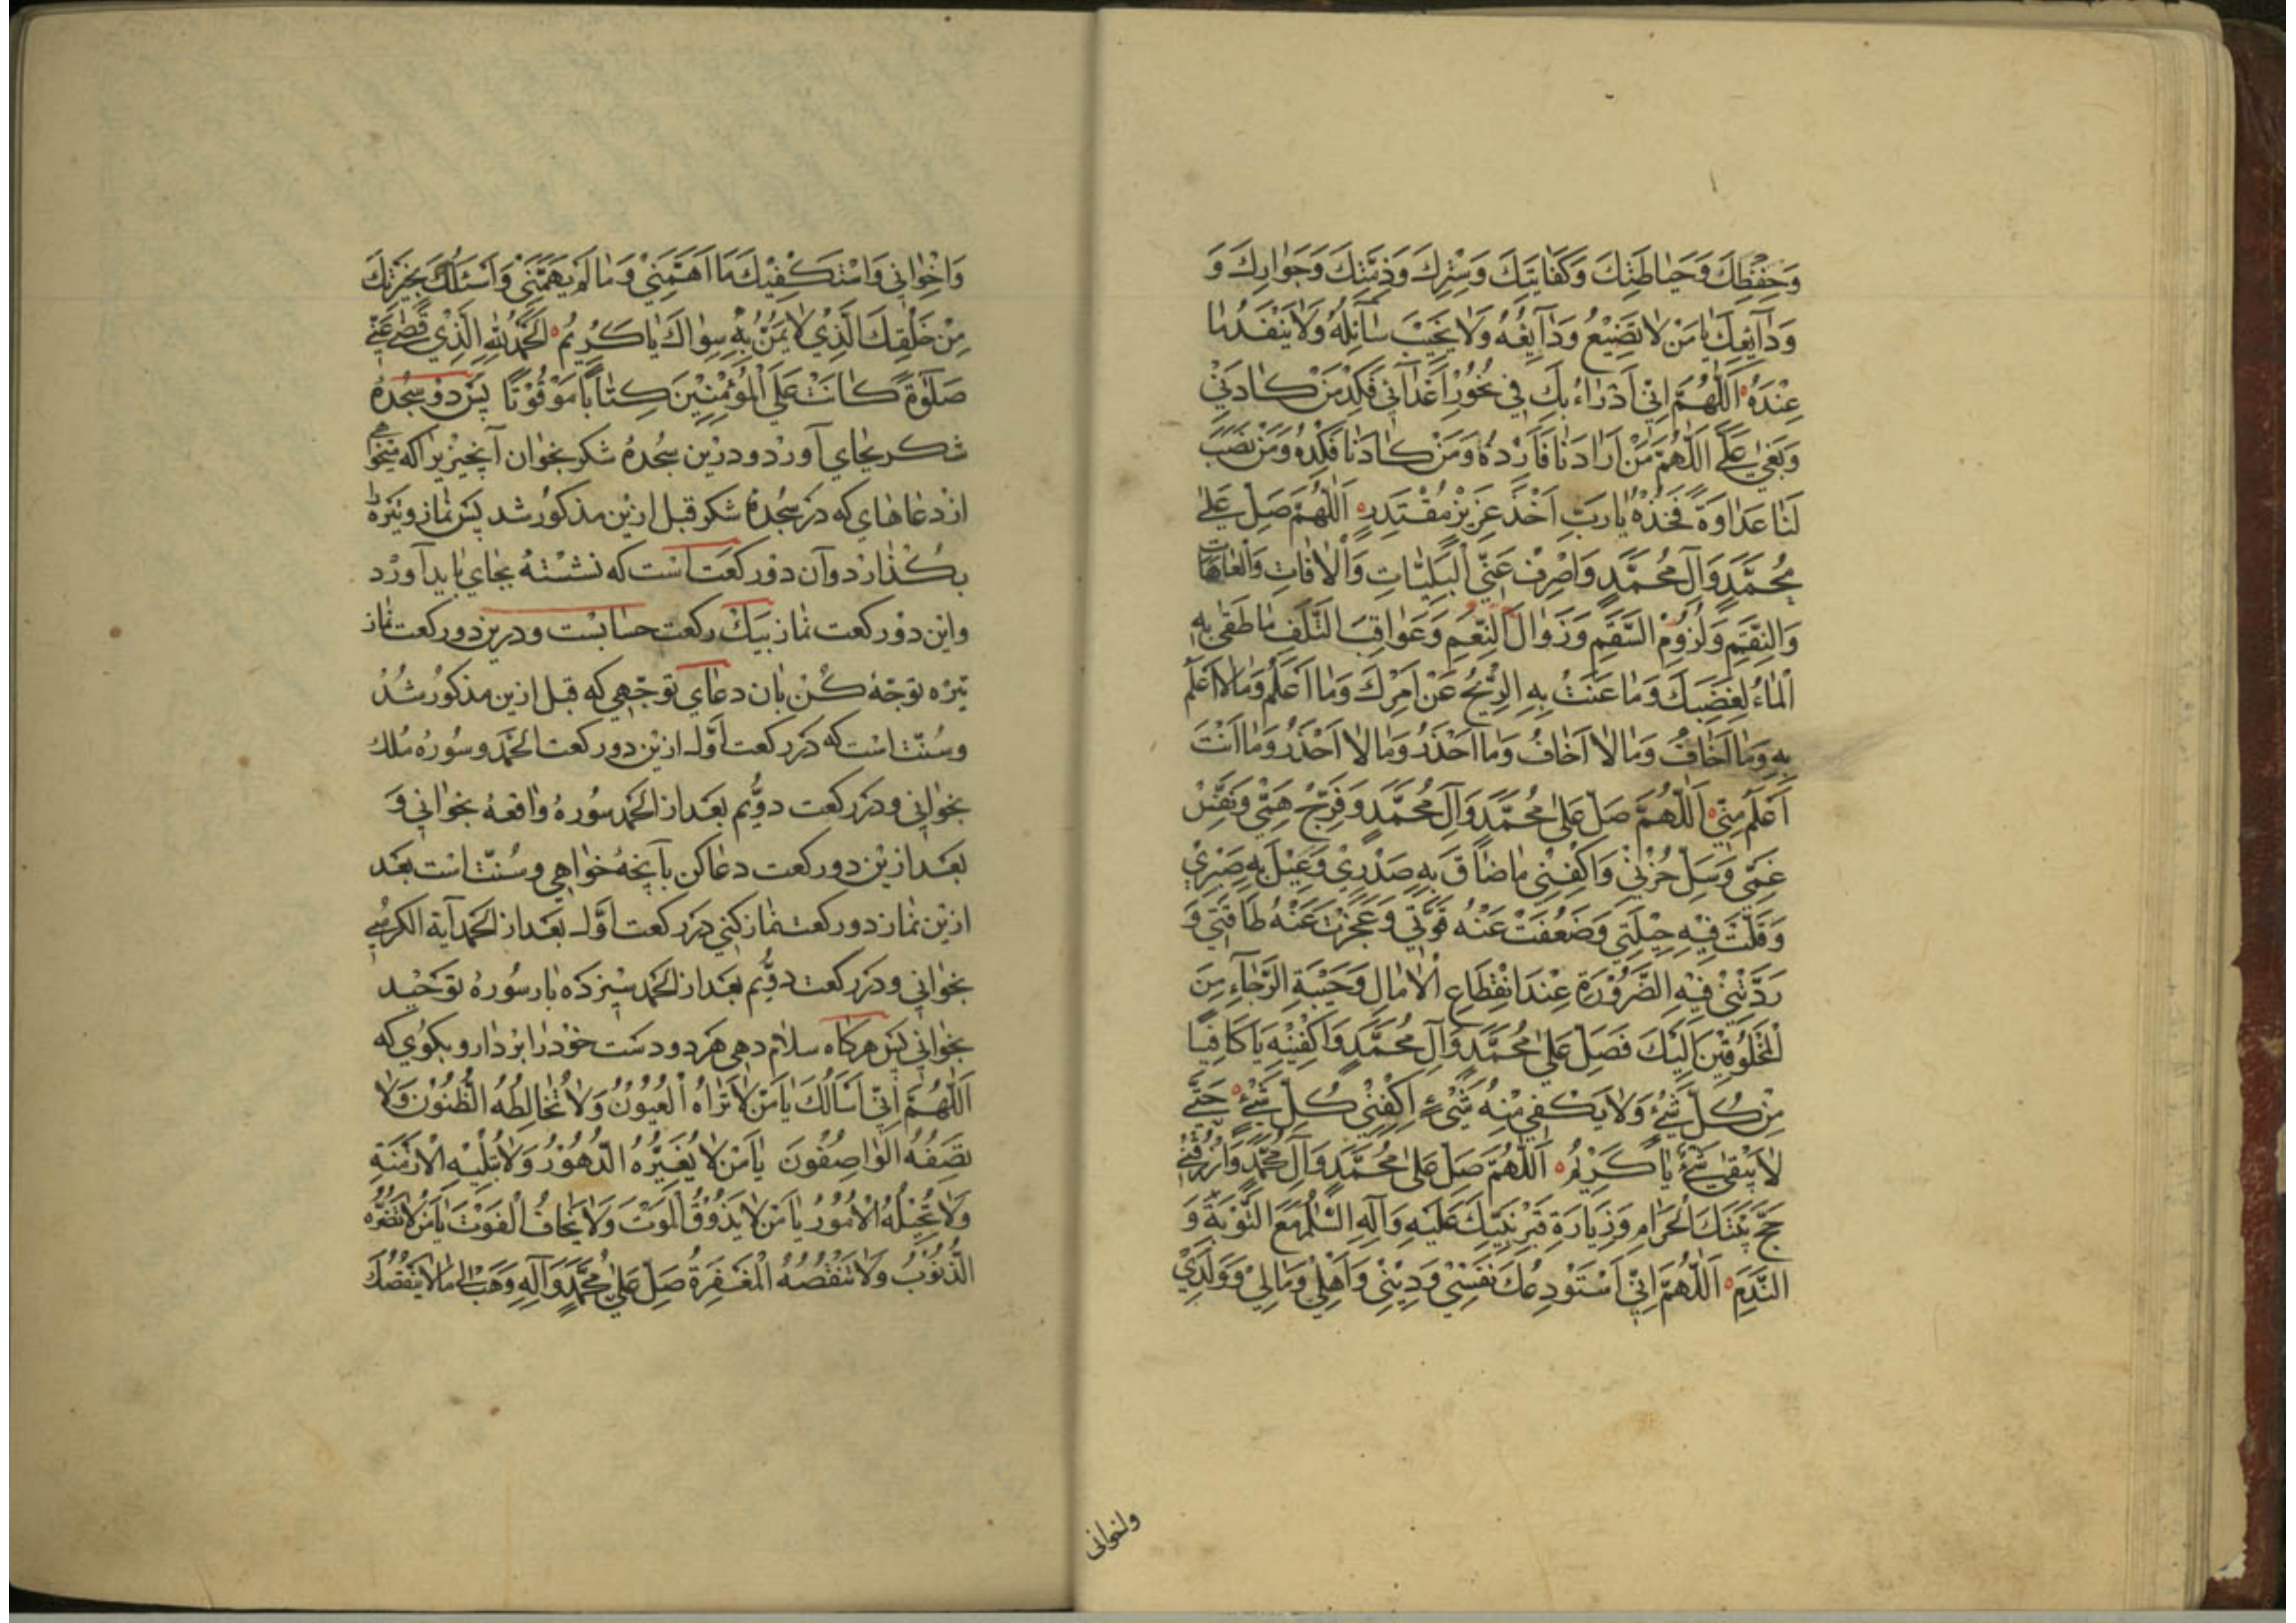 وَحِفْظِكَ وَحَيٰاطَتِكَ وَكَفٰايَتِكَ وَسِتْرِكَ وَذِمَّتِكَ وَجَوٰارِكَ وَ
وَدٰآيِعِكَ يٰا مَنْ لٰا تَضِيْعُ وَدٰآيِعُهُ وَلٰا يَخْيَبُ سٰآئِلُهُ وَلٰا يَنْفَدُ مٰا
عِنْدَهُ اَللّٰهُمَّ اِنّٖي اَدْرَاءُ بِكَ فٖي نُحُوْرِ اَعْدٰآئٖي فَكِدْ مَنْ كٰادَنٖيْ
وَبَغٰي عَلَيَّ اَللّٰهُمَّ مَنْ اَرٰادَنٰا فَاَرِدْهُ وَمَنْ كٰادَنٰا فَكِدْهُ وَمَنْ نَصَبَ
لَنٰا عَدٰاوَةً فَخُذْهُ يٰا رَبِّ اَخْذَ عَزٖيْزٍ مُقْتَدِرٍ اَللّٰهُمَّ صَلِّ عَلٰي
مُحَمَّدٍ وَآلِ مُحَمَّدٍ وَاصْرِفْ عَنّٖي الْبَلِيّٰاتِ وَالْاٰفٰاتِ وَالْعٰاهٰاتِ
وَالنِّقَمِ وَلُزُوْمَ السَّقَمِ وَزَوٰالَ النِّعَمِ وَعَوٰاقِبَ التَّلَفِ مٰا طَغٰي بِهِ
الْمٰاءُ لِغَضَبِكَ وَمٰا عَتَتْ بِهِ الرّٖيْحُ عَنْ اَمْرِكَ وَمٰا اَعْلَمُ وَمٰا لٰا اَعْلَمُ
بِهِ وَمٰا اَخٰافُ وَمٰا لٰا اَخٰافُ وَمٰا اَحْذَرُ وَمٰا لٰا اَحْذَرُ وَمٰا اَنْتَ
اَعْلَمُ مِنّٖي اَللّٰهُمَّ صَلِّ عَلٰي مُحَمَّدٍ وَآلِ مُحَمَّدٍ وَفَرِّجْ هَمّٖي وَنَفِّسْ
غَمّٖي وَسَلِّ حُزْنٖيْ وَاكْفِنٖيْ مٰا ضٰاقَ بِهِ صَدْرٖيْ وَعٖيْلَ بِهِ صَبْرٖيْ
وَقَلَّتْ فٖيْهِ حٖيْلَتٖي وَضَعُفَتْ عَنْهُ قُوَّتٖي وَعَجَزَتْ عَنْهُ طٰاقَتٖي وَ
رَدَّتْنٖيْ فٖيْهِ الضَّرُوْرَةُ عِنْدَ انْقِطٰاعِ الْاٰمٰالِ وَخَيْبَةِ الرَّجٰآءِ مِنَ
الْمَخْلُوْقٖيْنَ اِلَيْكَ فَصَلِّ عَلٰي مُحَمَّدٍ وَآلِ مُحَمَّدٍ وَاكْفِنٖيْهِ يٰا كٰافِيًا
مِنْ كُلِّ شَيْءٍ وَلٰا يَكْفٖي مِنْهُ شَيْءٌ اِكْفِنٖيْ كُلَّ شَيْءٍ حَتّٰي
لٰا يَبْقٰي شَيْءٌ يٰا كَرٖيْمُ اَللّٰهُمَّ صَلِّ عَلٰي مُحَمَّدٍ وَآلِ مُحَمَّدٍ وَارْزُقْنٖيْ
حَجَّ بَيْتِكَ الْحَرٰامِ وَزِيٰارَةَ قَبْرِ نَبِيِّكَ عَلَيْهِ وَآلِهِ السَّلٰمُ مَعَ التَّوْبَةِ وَ
النَّدَمِ اَللّٰهُمَّ اِنّٖي اَسْتَوْدِعُكَ نَفْسٖيْ وَدٖيْنٖيْ وَاَهْلٖيْ وَمٰالٖيْ وَوَلَدٖيْ
واخوانی
وَاِخْوٰانٖي وَاَسْتَكْفٖيْكَ مٰا اَهَمَّنٖيْ وَمٰا لَمْ يُهِمَّنٖيْ وَاَسْئَلُكَ بِخِيَرَتِكَ
مِنْ خَلْقِكَ الَّذٖيْ لٰا يَمُنُّ بِهِ سِوٰاكَ يٰا كَرٖيْمُ اَلْحَمْدُ لِلّٰهِ الَّذٖيْ قَضٰي عَنّٖي
صَلٰوةً كٰانَتْ عَلَي الْمُؤْمِنٖيْنَ كِتٰابًا مَوْقُوْتًا پس دو سجده
شكر بجاي آورد و درين سجده شكر بخوان آنچيزيرا كه ميخواهي
از دعاهاي كه در سجده شكر قبل ازين مذكور شد پس نماز وتيره را
بكذارد و آن دو ركعت است كه نشسته بجاي بايد آورد
واين دو ركعت نماز بيك ركعت حسابست و درين دو ركعت نماز
تيره توجّه كن بان دعاي توجّهي كه قبل ازين مذكور شد
وسنّت است كه در ركعت اوّل ازين دو ركعت الحمد و سوره ملك
بخواني و در ركعت دويّم بعد از الحمد سوره واقعه بخواني و
بعد ازين دو ركعت دعا كن بآنچه خواهي و سنّت است بعد
ازين نماز دو ركعت نماز كني در ركعت اوّل بعد از الحمد آية الكرسي
بخواني و در ركعت دويّم بعد از الحمد سيزده بار سوره توحيد
بخواني پس هركاه سلام دهي هر دو دست خود را بر دار و بكوي كه
اَللّٰهُمَّ اِنّٖي اَسْاَلُكَ يٰا مَنْ لٰا تَرٰاهُ الْعُيُوْنُ وَلٰا تُخٰالِطُهُ الظُّنُوْنُ وَلٰا
تَصِفُهُ الْوٰاصِفُوْنَ يٰا مَنْ لٰا يُغَيِّرُهُ الدُّهُوْرُ وَلٰا تُبْلٖيْهِ الْاَزْمِنَةِ
وَلٰا تُحٖيْلُهُ الْاُمُوْرُ يٰا مَنْ لٰا يَذُوْقُ الْمَوْتَ وَلٰا يَخٰافُ الْفَوْتَ يٰا مَنْ لٰا تَضُرُّهُ
الذُّنُوْبُ وَلٰا تَنْقُصُهُ الْمَغْفِرَةُ صَلِّ عَلٰي مُحَمَّدٍ وَآلِهِ وَهَبْ لٖي مٰا لٰا يَنْقُصُكَ